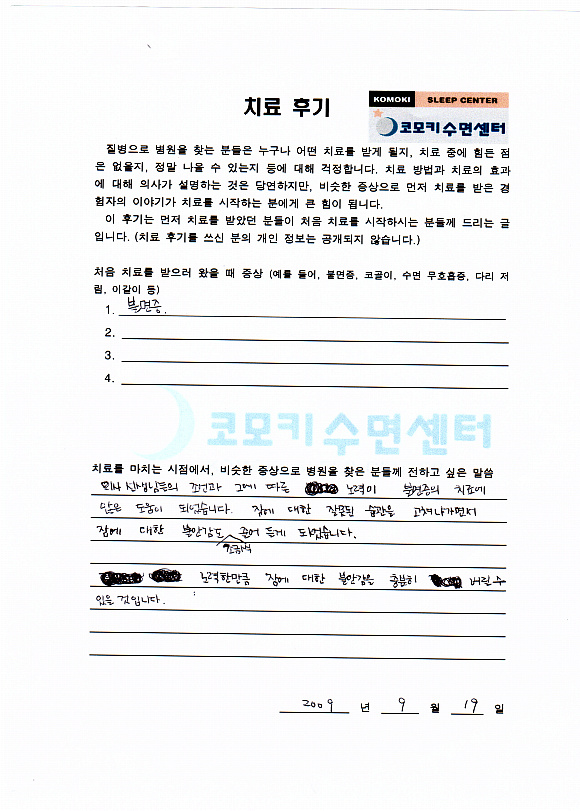 치료 후기
KOMOKI SLEEP CENTER
코모키수면센터
질병으로 병원을 찾는 분들은 누구나 어떤 치료를 받게 될지, 치료 중에 힘든 점
은 없을지, 정말 나을 수 있는지 등에 대해 걱정합니다. 치료 방법과 치료의 효과
에 대해 의사가 설명하는 것은 당연하지만, 비슷한 증상으로 먼저 치료를 받은 경
험자의 이야기가 치료를 시작하는 분에게 큰 힘이 됩니다.
이 후기는 먼저 치료를 받았던 분들이 처음 치료를 시작하시는 분들께 드리는 글
입니다. (치료 후기를 쓰신 분의 개인 정보는 공개되지 않습니다.)
처음 치료를 받으러 왔을 때 증상 (예를 들어, 불면증, 코골이, 수면 무호흡증, 다리 저
림, 이갈이 등)
1. 불면증.
2.
3.
4.
코모키수면센터
치료를 마치는 시점에서, 비슷한 증상으로 병원을 찾은 분들께 전하고 싶은 말씀
의사 선생님들의 조언과 그에 따른 노력이 불면증의 치료에
많은 도움이 되었습니다. 잠에 대한 잘못된 습관을 고쳐나가면서
잠에 대한 불안감도 줄어 들게 되었습니다.
노력한만큼 잠에 대한 불안감을 충분히 버릴 수
있을 것입니다.
2009 년 9 월 19 일